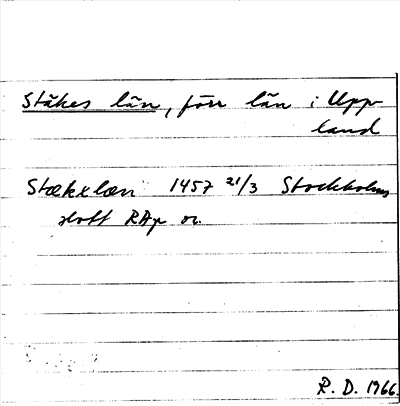 Stäkes län, förr län i Upp-
land
Stækxlæn 1457 21/3 Stockholms
slott RAp or.
R. D. 1966